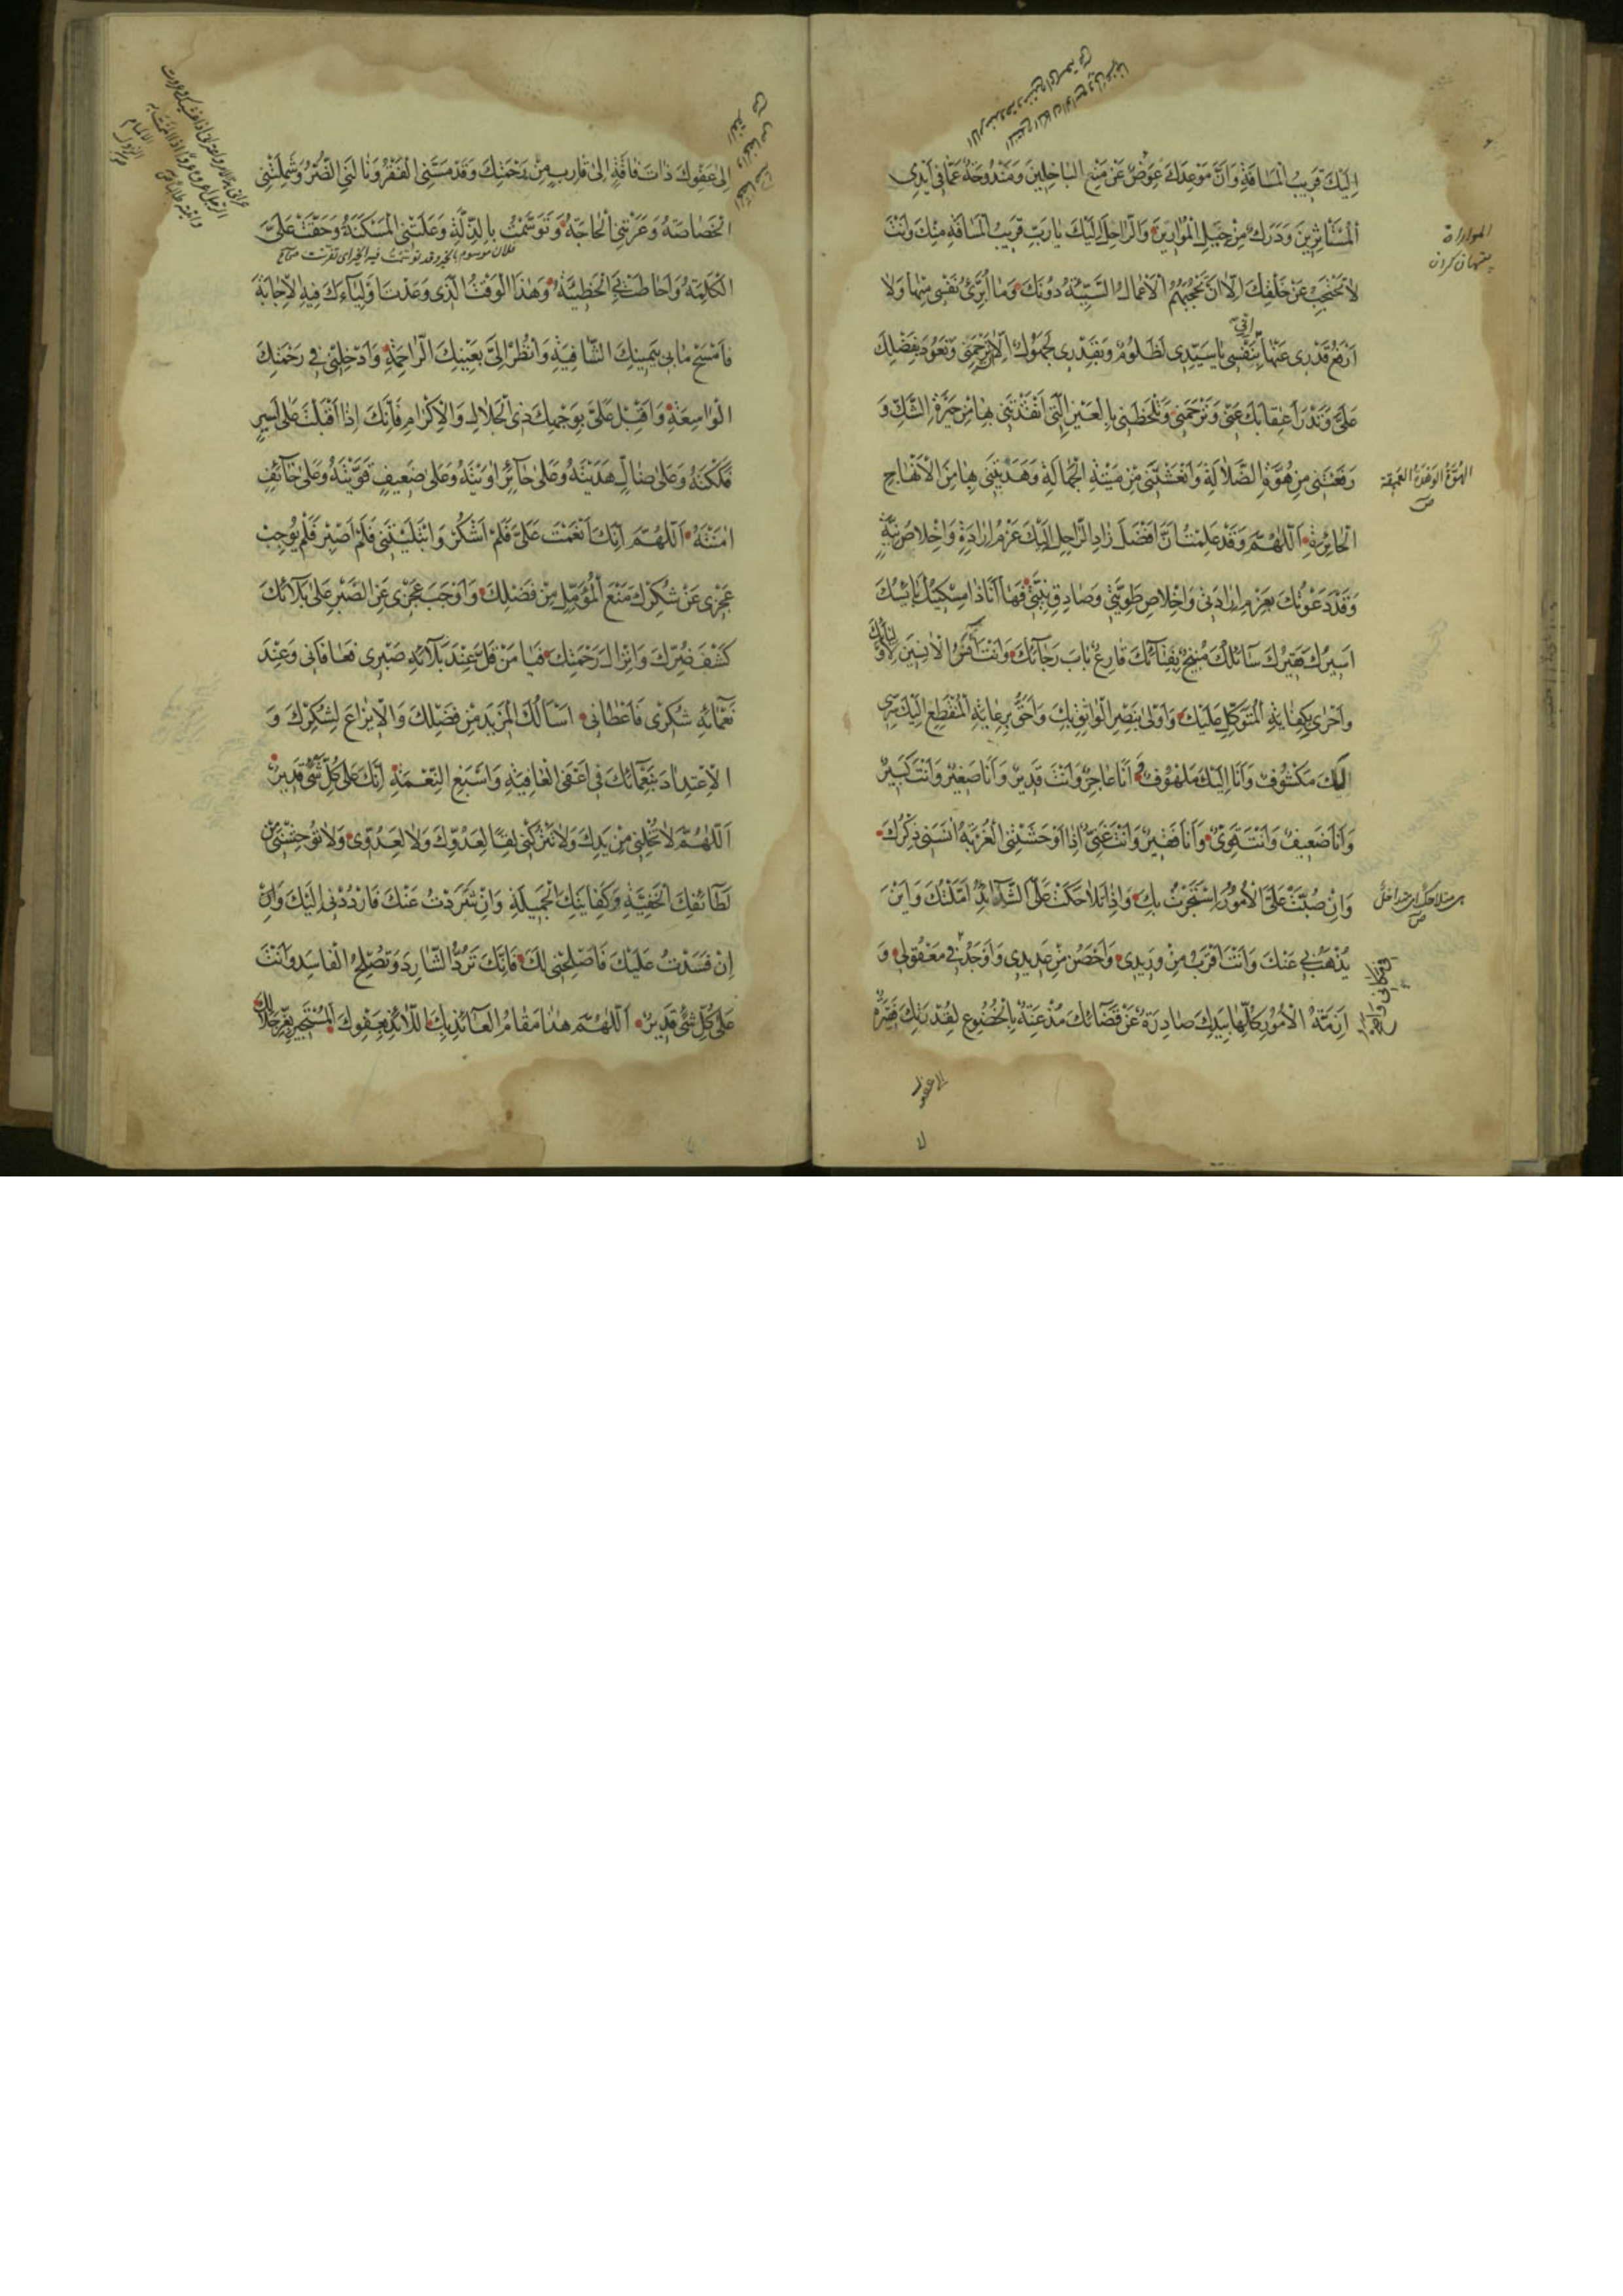 اِلَيْكَ قَرِيبُ الْمَسَافَةِ وَاَنَّ مَوْعِدَكَ عِوَضٌ عَنْ مَنْعِ الْبَاخِلِينَ وَمَنْدُوحَةٌ عَمَّا فِى اَيْدِى
الْمُسْتَأْثِرِينَ وَدَرَكٌ مِنْ حِيَلِ الْمُوَارِبِينَ وَالرَّاحِلَ اِلَيْكَ يَا رَبِّ قَرِيبُ الْمَسَافَةِ مِنْكَ وَاَنْتَ
لَا تَحْتَجِبُ عَنْ خَلْقِكَ اِلَّا اَنْ تَحْجُبَهُمُ الْاَعْمَالُ السَّيِّئَةُ دُونَكَ وَمَا اُبَرِّئُ نَفْسِى مِنْهَا وَلَا
اَرْفَعُ قَدْرِى عَنْهَا اِنِّى لِنَفْسِى يَا سَيِّدِى لَظَلُومٌ وَبِقَدْرِى لَجَهُولٌ اِلَّا اَنْ تَرْحَمَنِى وَتَعُودَ بِفَضْلِكَ
عَلَىَّ وَتَدْرَأَ عِقَابَكَ عَنِّى وَتَرْحَمَنِى وَتَلْحَظَنِى بِالْعَيْنِ الَّتِى اَنْقَذْتَنِى بِهَا مِنْ حَيْرَةِ الشَّكِّ وَ
رَفَعْتَنِى مِنْ هُوَّةِ الضَّلَالَةِ وَاَنْعَشْتَنِى مِنْ مَيْتَةِ الْجَهَالَةِ وَهَدَيْتَنِى بِهَا مِنَ الْاَنْهَاجِ
الْحَائِرَةِ اَللّٰهُمَّ وَقَدْ عَلِمْتُ اَنَّ اَفْضَلَ زَادِ الرَّاحِلِ اِلَيْكَ عَزْمُ اِرَادَةٍ وَاِخْلَاصُ نِيَّةٍ
وَقَدْ دَعَوْتُكَ بِعَزْمِ اِرَادَتِى وَاِخْلَاصِ طَوِيَّتِى وَصَادِقِ نِيَّتِى فَهَا اَنَا ذَا مِسْكِينُكَ بَائِسُكَ
اَسِيرُكَ فَقِيرُكَ سَائِلُكَ مُنِيخٌ بِفِنَائِكَ قَارِعٌ بَابَ رَجَائِكَ وَاَنْتَ آنَسُ الْآنِسِينَ لِاَوْلِيَائِكَ
وَاَحْرٰى بِكِفَايَةِ الْمُتَوَكِّلِ عَلَيْكَ وَاَوْلٰى بِنَصْرِ الْوَاثِقِ بِكَ وَاَحَقُّ بِرِعَايَةِ الْمُنْقَطِعِ اِلَيْكَ سِرِّى
اِلَيْكَ مَكْشُوفٌ وَاَنَا اِلَيْكَ مَلْهُوفٌ اَنَا عَاجِزٌ وَاَنْتَ قَدِيرٌ وَاَنَا صَغِيرٌ وَاَنْتَ كَبِيرٌ
وَاَنَا ضَعِيفٌ وَاَنْتَ قَوِىٌّ وَاَنَا فَقِيرٌ وَاَنْتَ غَنِىٌّ اِذَا اَوْحَشَتْنِى الْغُرْبَةُ اٰنَسَنِى ذِكْرُكَ
وَاِنْ صُبَّتْ عَلَىَّ الْاُمُورُ اسْتَجَرْتُ بِكَ وَاِذَا تَلَاحَكَتْ عَلَىَّ الشَّدَائِدُ اَمَّلْتُكَ وَاَيْنَ
يُذْهَبُ بِى عَنْكَ وَاَنْتَ اَقْرَبُ مِنْ وَرِيدِى وَاَحْصَنُ مِنْ عَدِيدِى وَاَوْجَدُ فِى مَعْقُولِى وَ
اَزِمَّةُ الْاُمُورِ كُلِّهَا بِيَدِكَ صَادِرَةٌ عَنْ قَضَائِكَ مُذْعِنَةٌ بِالْخُضُوعِ لِقُدْرَتِكَ فَقِيرَةٌ
المواراة
پنهان كردن
الهوّة الوهدة العميقة
اِلٰى عَفْوِكَ ذَاتُ فَاقَةٍ اِلٰى قَارِبٍ مِنْ رَحْمَتِكَ وَقَدْ مَسَّنِى الْفَقْرُ وَنَالَنِى الضُّرُّ وَشَمِلَتْنِى
الْخَصَاصَةُ وَعَرَتْنِى الْحَاجَةُ وَتَوَسَّمْتُ بِالذِّلَّةِ وَعَلَتْنِى الْمَسْكَنَةُ وَحَقَّتْ عَلَىَّ
فلان موسوم بالخير وقد توسّمت فيه الخير اى تفرّست
الْكَلِمَةُ وَاَحَاطَتْ بِىَ الْخَطِيئَةُ وَهٰذَا الْوَقْتُ الَّذِى وَعَدْتَ اَوْلِيَاءَكَ فِيهِ الْاِجَابَةَ
فَامْسَحْ مَا بِى بِيَمِينِكَ الشَّافِيَةِ وَانْظُرْ اِلَىَّ بِعَيْنِكَ الرَّاحِمَةِ وَاَدْخِلْنِى فِى رَحْمَتِكَ
الْوَاسِعَةِ وَاَقْبِلْ عَلَىَّ بِوَجْهِكَ ذِى الْجَلَالِ وَالْاِكْرَامِ فَاِنَّكَ اِذَا اَقْبَلْتَ عَلٰى اَسِيرٍ
فَكَكْتَهُ وَعَلٰى ضَالٍّ هَدَيْتَهُ وَعَلٰى حَائِرٍ اٰوَيْتَهُ وَعَلٰى ضَعِيفٍ قَوَّيْتَهُ وَعَلٰى خَائِفٍ
اٰمَنْتَهُ اَللّٰهُمَّ اِنَّكَ اَنْعَمْتَ عَلَىَّ فَلَمْ اَشْكُرْ وَابْتَلَيْتَنِى فَلَمْ اَصْبِرْ فَلَمْ يُوجِبْ
عَجْزِى عَنْ شُكْرِكَ مَنْعَ الْمُؤَمَّلِ مِنْ فَضْلِكَ وَاَوْجَبَ عَجْزِى عَنِ الصَّبْرِ عَلٰى بَلَائِكَ
كَشْفَ ضُرِّكَ وَاِنْزَالَ رَحْمَتِكَ فَيَا مَنْ قَلَّ عِنْدَ بَلَائِهِ صَبْرِى فَعَافَانِى وَعِنْدَ
نَعْمَائِهِ شُكْرِى فَاَعْطَانِى اَسْاَلُكَ الْمَزِيدَ مِنْ فَضْلِكَ وَالْاِيزَاعَ لِشُكْرِكَ وَ
الْاِعْتِدَادَ بِنَعْمَائِكَ فِى اَعْفَى الْعَافِيَةِ وَاَسْبَغِ النِّعْمَةِ اِنَّكَ عَلٰى كُلِّ شَىْءٍ قَدِيرٌ
اَللّٰهُمَّ لَا تُخْلِنِى مِنْ يَدِكَ وَلَا تَتْرُكْنِى لِقًا لِعَدُوِّكَ وَلَا لِعَدُوِّى وَلَا تُوحِشْنِى مِنْ
لَطَائِفِكَ الْخَفِيَّةِ وَكِفَايَتِكَ الْجَمِيلَةِ وَاِنْ شَرَدْتُ عَنْكَ فَارْدُدْنِى اِلَيْكَ وَاِنْ
اِنْ فَسَدْتُ عَلَيْكَ فَاَصْلِحْنِى لَكَ فَاِنَّكَ تَرُدُّ الشَّارِدَ وَتُصْلِحُ الْفَاسِدَ وَاَنْتَ
عَلٰى كُلِّ شَىْءٍ قَدِيرٌ اَللّٰهُمَّ هٰذَا مَقَامُ الْعَائِذِ بِكَ اللَّائِذِ بِعَفْوِكَ الْمُسْتَجِيرِ بِعِزِّ جَلَالِكَ